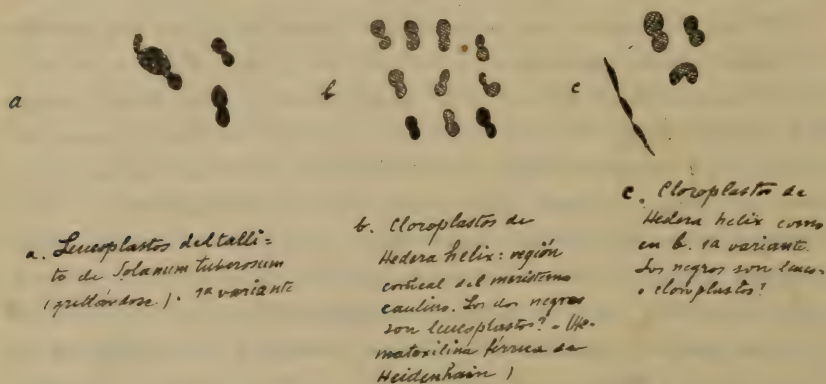 a
b
c
a. Leucoplastos del talli=
to de Solanum tuberosum
(grillándose). 1ª variante
b. Cloroplastos de
Hedera helix: región
cortical del meristemo
caulino. Los dos negros
son leucoplastos? - (He-
matoxilina férrica de
Heidenhain)
c. Cloroplastos de
Hedera helix como
en b. 1ª variante.
Los negros son leuco-
o cloroplastos?